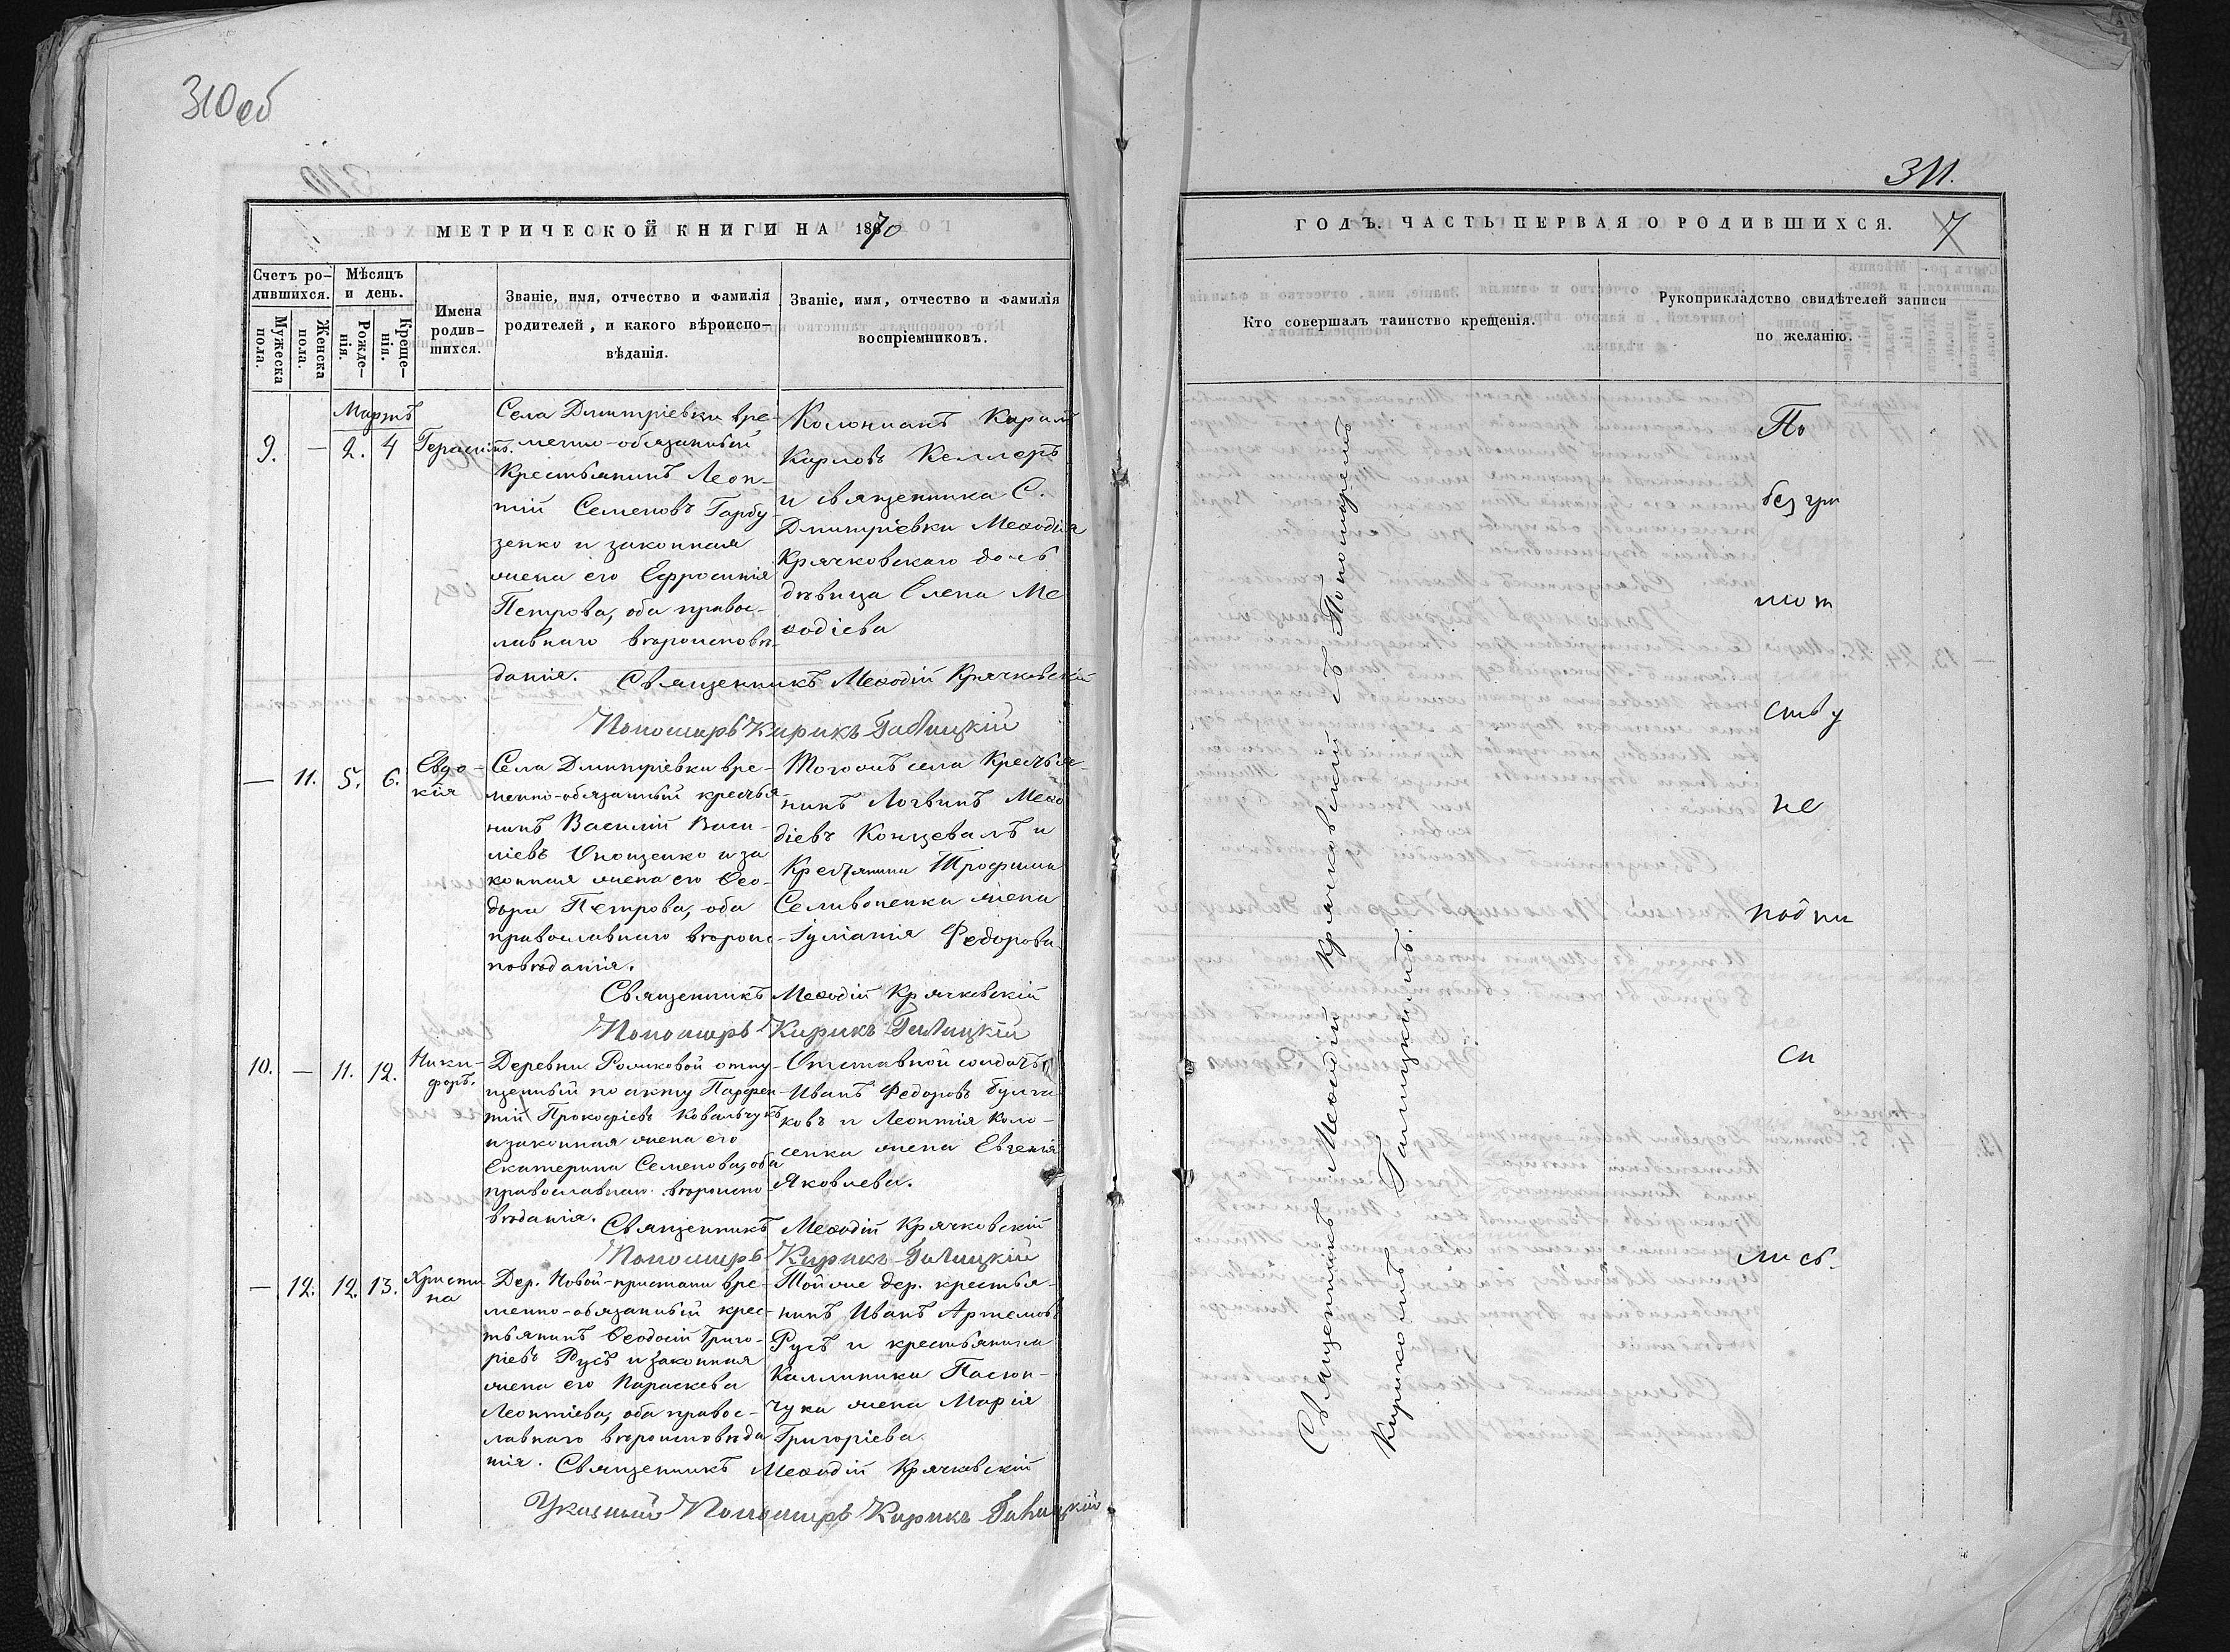 310 об
МЕТРИЧЕСКОЙ КНИГИ НА 1870
Счетъ ро-
дившихся.
Мужеска
пола.
Женска
пола.
Мѣсяцъ
и день.
Рожде-
нія.
Креще-
нія.
Имена
родив-
шихся.
Званіе, имя, отчество и фамилія
родителей, и какого вѣроиспо-
вѣданія.
Званіе, имя, отчество и фамилія
воспріемниковъ.
Мартъ
9. — 2. 4
Герасимъ.
Села Дмитріевки вре-
менно-обязанный
Крестьянинъ Леон-
тій Семеновъ Гарбу
зенко и законная
жена его Ефросинія
Петрова, оба правос-
лавнаго вѣроисповѣ-
данія.
Колонистъ Карилъ
Карловъ Келлеръ
и священника С.
Дмитріевки Меѳодія
Крячковскаго дочь
дѣвица Елена Ме
ѳодіева
Священникъ Меѳодій Крячковскій
Пономарь Кирикъ Галицкій
— 11. 5. 6.
Евдо-
кія
Села Дмитріевки вре-
менно-обязанный крестья-
нинъ Василій Васи-
ліевъ Онощенко и за
конная жена его Ѳео-
дора Петрова, оба
православнаго вѣроис-
повѣданія.
Тогожъ села Крестья-
нинъ Логвинъ Меѳо
діевъ Концевалъ и
Крестьянина Трофима
Селивоненка жена
Іуліанія Федорова
Священникъ Меѳодій Крячковскій
Пономарь Кирикъ Галицкій
10. — 11. 12.
Ники-
форъ.
Деревни Роликовой отпу-
щенный по акту Парфен
тій Прокофіевъ Ковальчукъ
и законная жена его
Екатерина Семенова, оба
православнаго вѣроиспо
вѣданія.
Отставной солдатъ
Иванъ Федоровъ Булга
ковъ и Леонтія Коло-
сенка жена Евгенія
Яковлева.
Священникъ Меѳодій Крячковскій
Пономарь Кирикъ Галицкій
— 12. 12. 13.
Христи
на
Дер. Новой-пристани вре-
менно-обязанный крес-
тьянинъ Ѳеодосій Григо-
ріевъ Русъ и законная
жена его Параскева
Леонтіева, оба правос-
лавнаго вѣроисповѣда
нія.
Той же дер. крестья-
нинъ Иванъ Артемовъ
Русъ и крестьянина
Каллиника Пасюн-
чука жена Марія
Григоріева.
Священникъ Меѳодій Крячковскій
Указный Пономарь Кирикъ Галицкій
311.
ГОДЪ. ЧАСТЬ ПЕРВАЯ О РОДИВШИХСЯ.
7
Кто совершалъ таинство крещенія.
Рукоприкладство свидѣтелей записи
по желанію.
Священникъ Меѳодій Крячковскій съ Пономаремъ
Кирикомъ Галицкимъ.
По
безгра
мот
ству
не
подпи
са
лись.